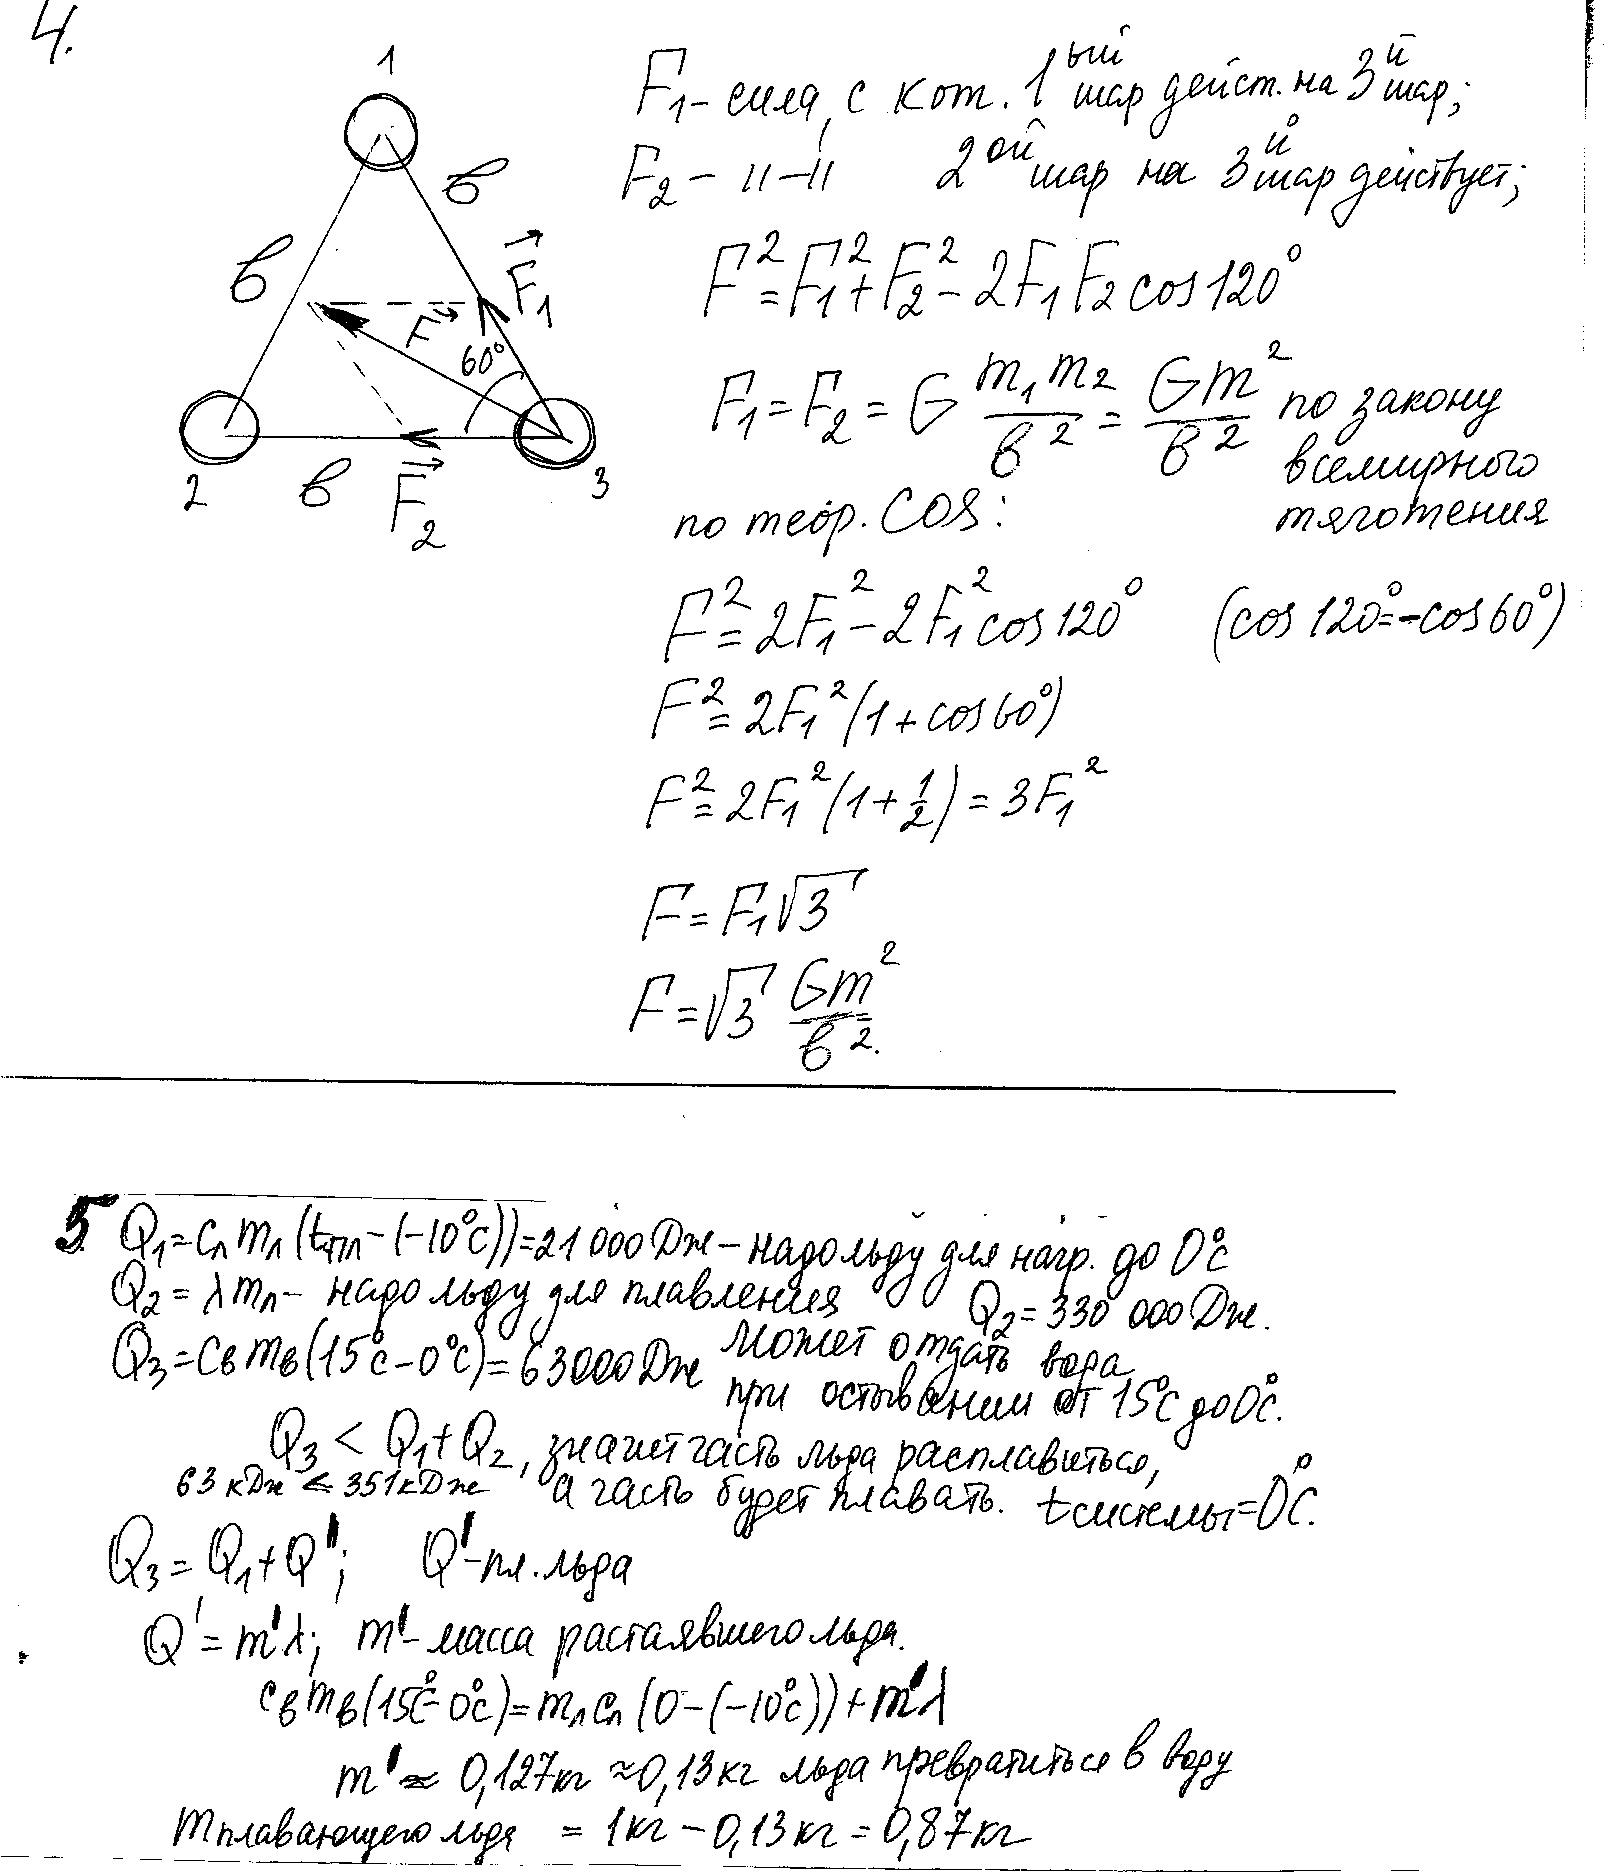 4.
1
в
в
F₁
F
60°
2
в
F₂
3
F₁ – сила, с кот. 1ый шар дейст. на 3й шар;
F₂ – 11–11 2ой шар на 3й шар действует;
F² = F₁² + F₂² – 2F₁F₂ cos 120°
F₁ = F₂ = G m₁m₂/в² = Gm²/в² по закону
всемирного
тяготения
по теор. cos:
F² = 2F₁² – 2F₁² cos 120° (cos 120° = –cos 60°)
F² = 2F₁² (1 + cos 60°)
F² = 2F₁² (1 + 1/2) = 3F₁²
F = F₁√3
F = √3 Gm²/в².
5. Q₁ = cл mл (tпл – (–10°C)) = 21 000 Дж – надо льду для нагр. до 0°C
Q₂ = λ mл – надо льду для плавления Q₂ = 330 000 Дж.
Q₃ = cв mв (15°C – 0°C) = 63000 Дж может отдать вода
при остывании от 15°C до 0°C.
Q₃ < Q₁ + Q₂, значит часть льда расплавиться,
63 кДж < 351 кДж а часть будет плавать. t системы = 0°C.
Q₃ = Q₁ + Q'; Q' – пл. льда
Q' = m'λ; m' – масса растаявшего льда.
cв mв (15°C – 0°C) = mл cл (0 – (–10°C)) + m'λ
m' ≈ 0,127 кг ≈ 0,13 кг льда превратиться в воду
m плавающего льда = 1 кг – 0,13 кг = 0,87 кг